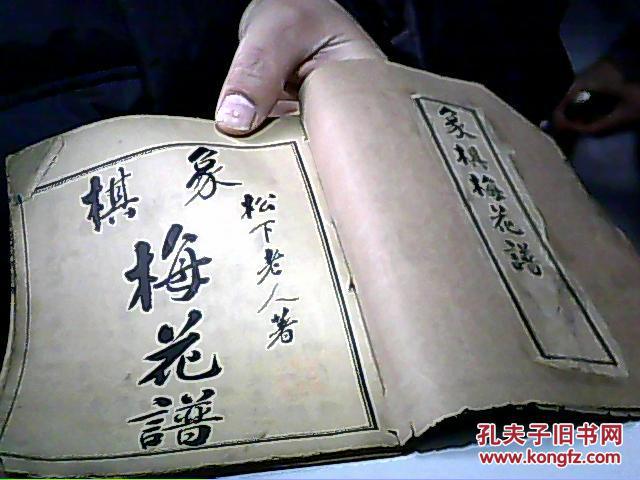 象棋梅花譜
松下老人著
象棋
梅花譜
孔夫子旧书网
www.kongfz.com